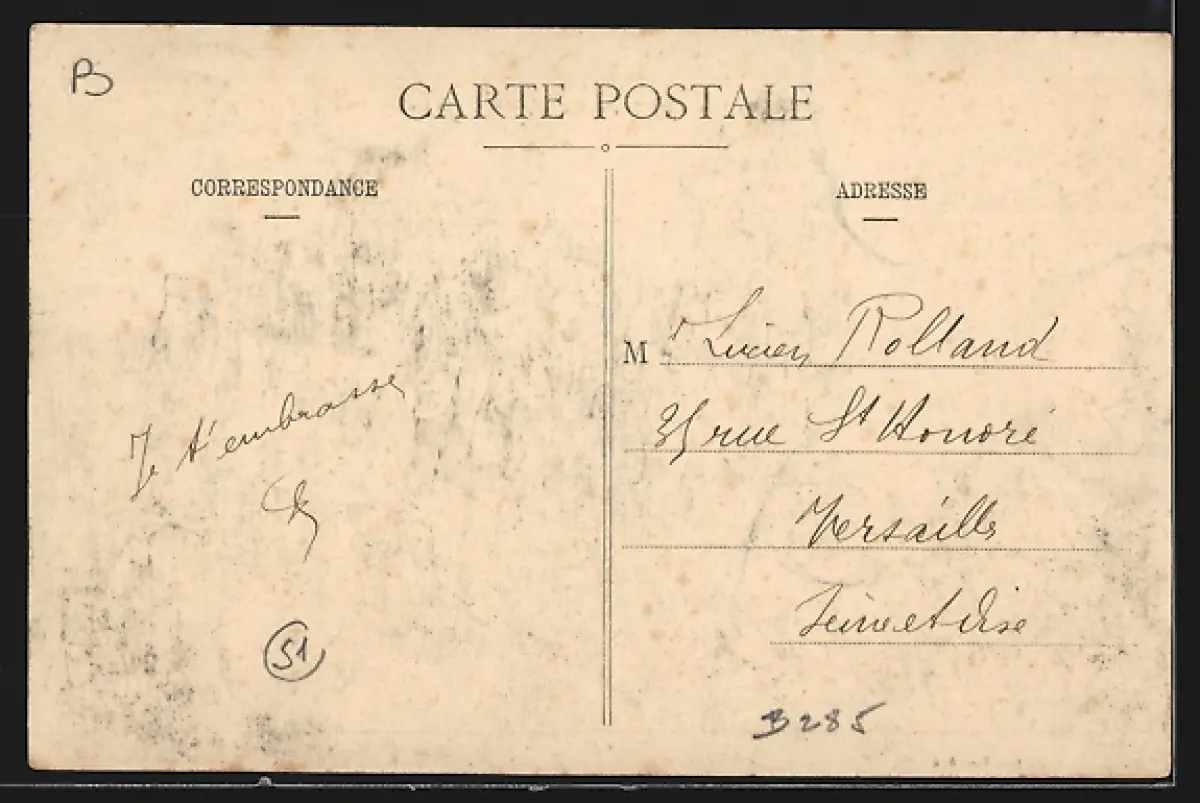 B
CARTE POSTALE
CORRESPONDANCE
Je t'embrasse
51
ADRESSE
M r Lucien Rolland
35 rue St Honoré
Versailles
Seine et Oise
B285